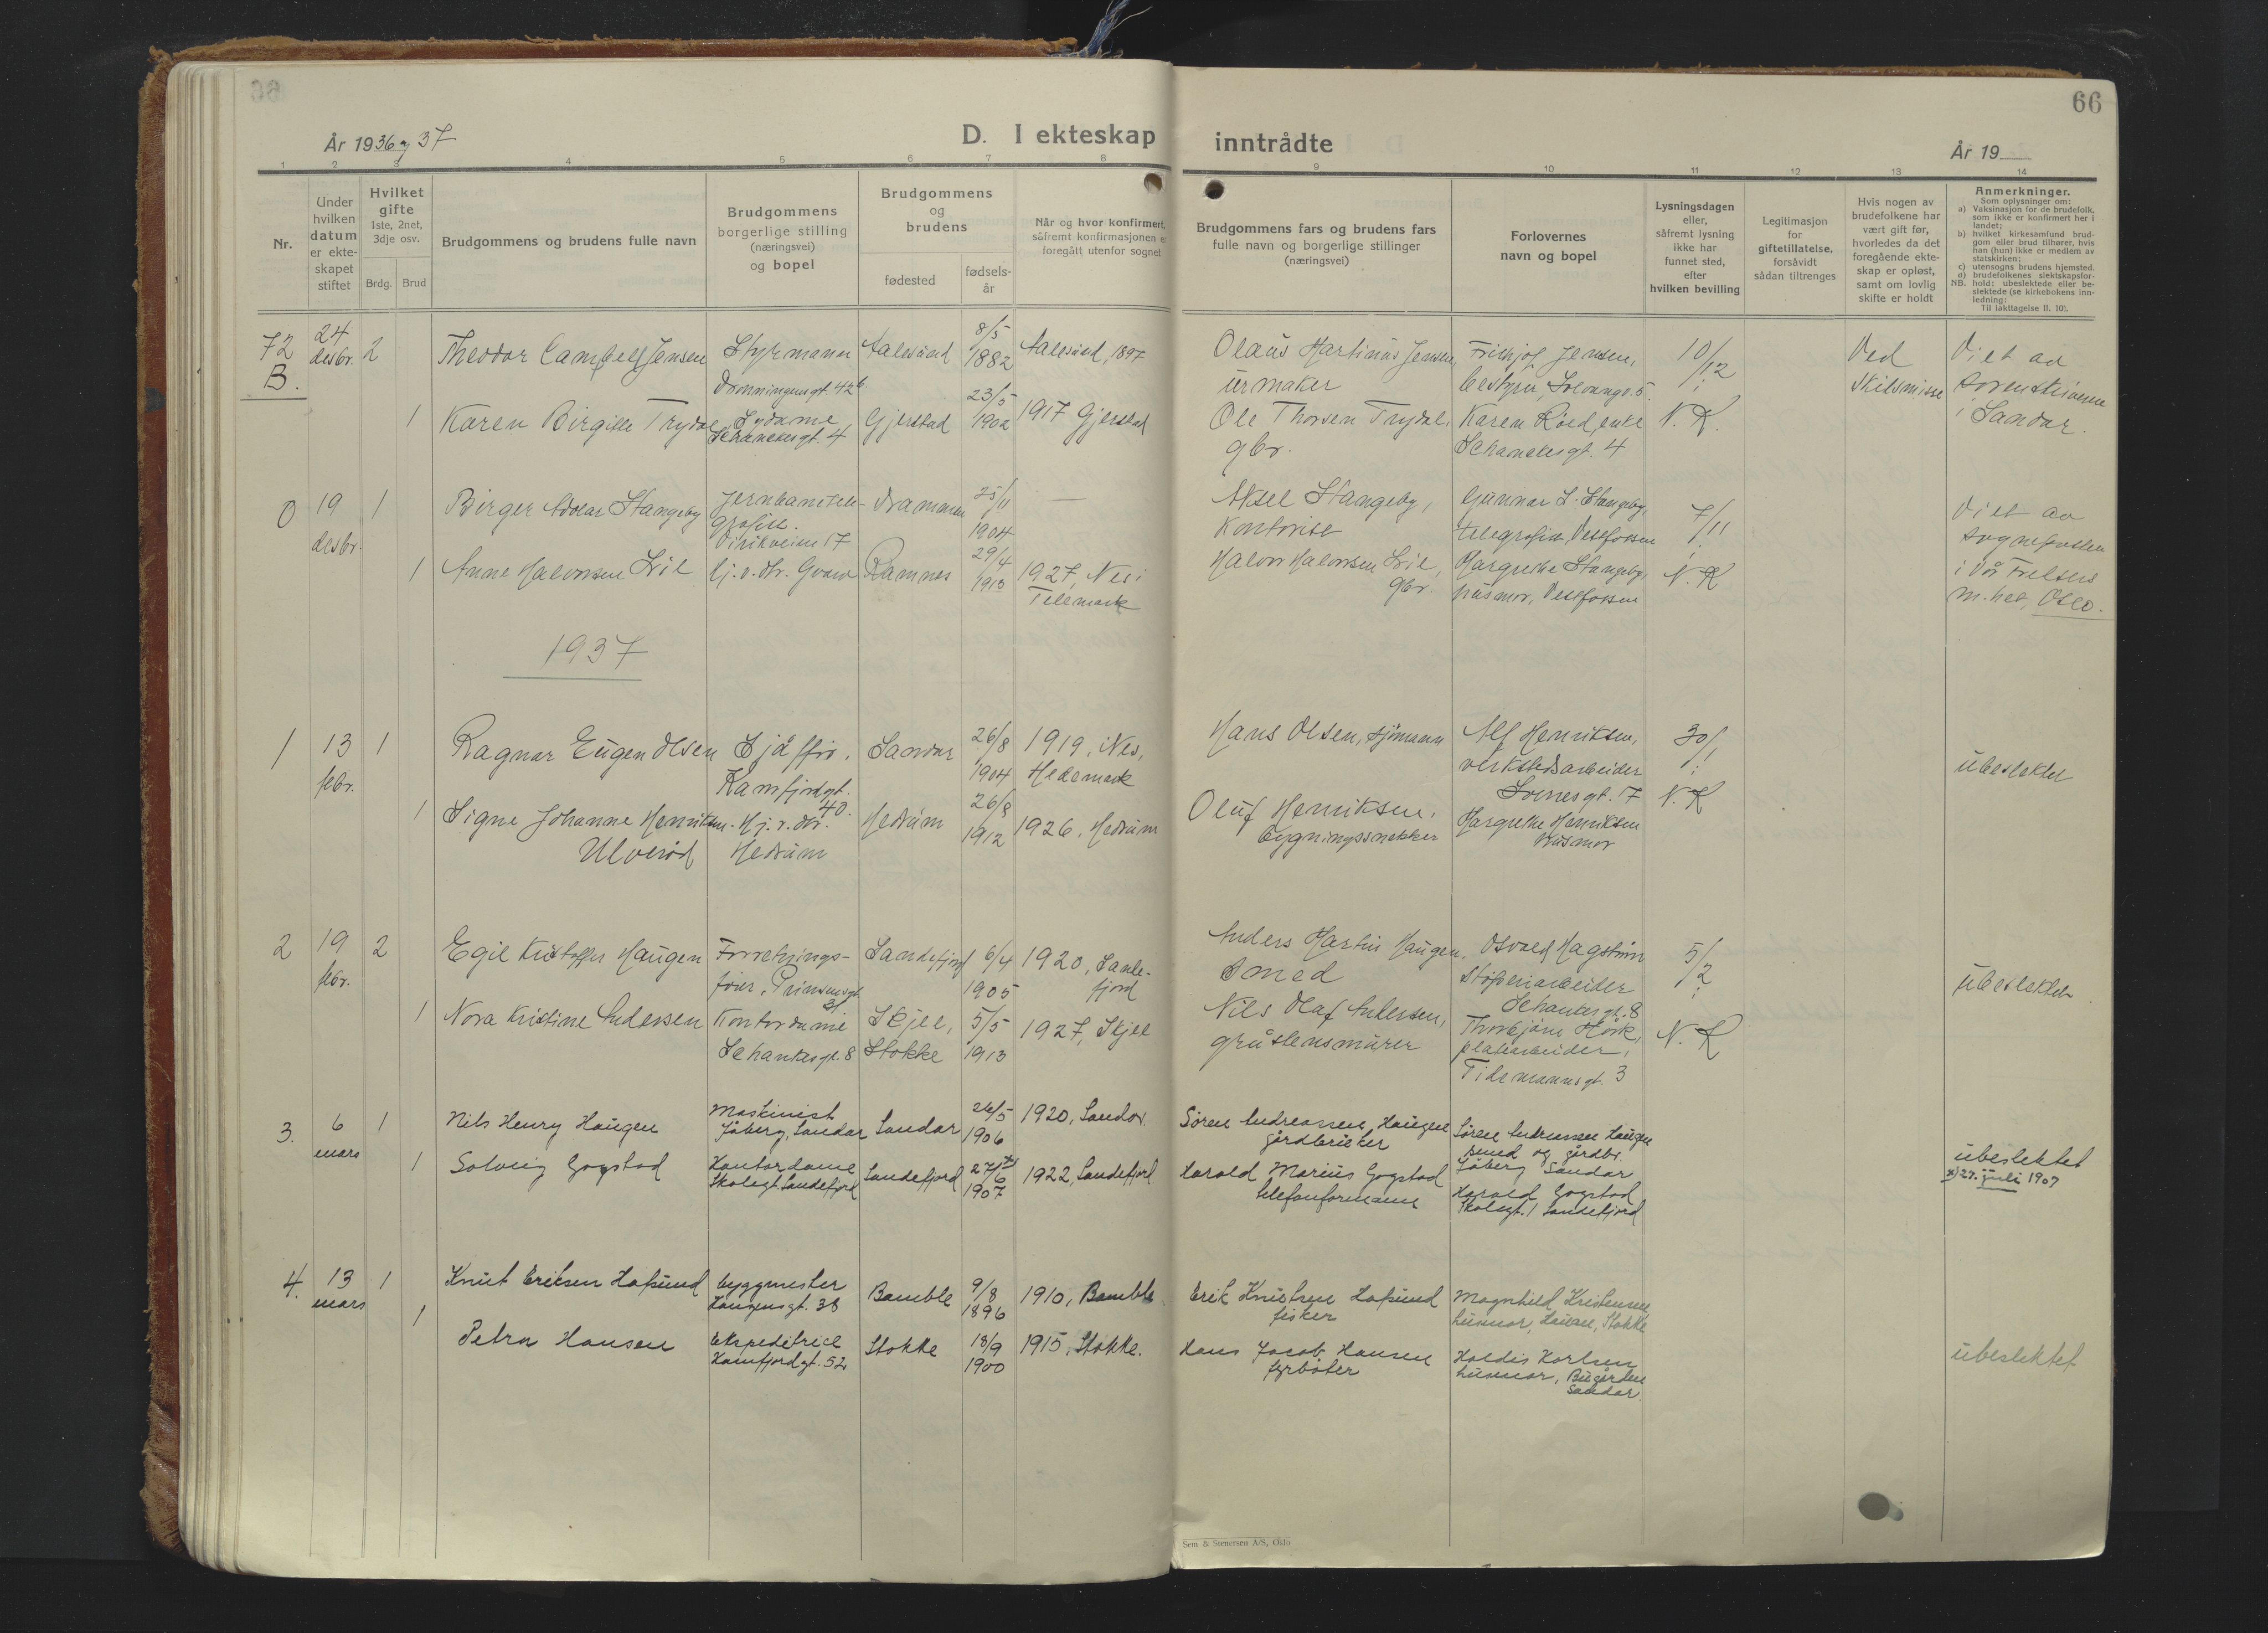 66
År 1936 og 37
D. I ekteskap inntrådte
År 19
1 2 3 4 5 6 7 8 9 10 11 12 13 14
Nr.
Under
hvilken
datum
er ekte-
skapet
stiftet
Hvilket
gifte
1ste, 2net,
3dje osv.
Brdg. Brud
Brudgommens og brudens fulle navn
Brudgommens
borgerlige stilling
(næringsvei)
og bopel
Brudgommens
og
brudens
fødested
fødsels-
år
Når og hvor konfirmert,
såfremt konfirmasjonen er
foregått utenfor sognet
Brudgommens fars og brudens fars
fulle navn og borgerlige stillinger
(næringsvei)
Forlovernes
navn og bopel
Lysningsdagen
eller,
såfremt lysning
ikke har
funnet sted,
efter
hvilken bevilling
Legitimasjon
for
giftetillatelse,
forsåvidt
sådan tiltrenges
Hvis nogen av
brudefolkene har
vært gift før,
hvorledes da det
foregående ekte-
skap er opløst,
samt om lovlig
skifte er holdt
Anmerkninger.
Som oplysninger om:
a) Vaksinasjon for de brudefolk,
som ikke er konfirmert her i
landet;
b) hvilket kirkesamfund brud-
gom eller brud tilhører, hvis
han (hun) ikke er medlem av
statskirken;
c) utensogns brudens hjemsted.
d) brudefolkenes slektskapsfor-
NB. hold: ubeslektede eller be-
slektede (se kirkebokens inn-
ledning:
Til iakttagelse II. 10).
72
B.
24
desbr.
2
Theodor Campell Jensen
Styrmann
Dronningensgt. 42b
Aalesund
8/5
1882
Aalesund, 1897
Olaus Martinus Jensen,
urmaker
Frithjof Jensen,
bestyrer,
10/12
Ved
skilsmisse
Viet av
sorenskriveren
i Sandar.
1
Karen Birgitte Trydal
Sydame
Schanckesgt. 4
Gjerstad
23/5
1902
1917 Gjerstad
Ole Thorsen Trydal,
gbr.
Karen Röed, enke
Schanckesgt. 4
N. K.
0
19
desbr.
1
Birger Adolar Stangeby
Jernbanetele-
grafist.
17
Drammen
25/11
1904
—
Aksel Stangeby,
Kontorist
Gunnar S. Stangeby,
telegrafist, Vestfossen
7/11
Viet av
sognepresten
i Vår Frelsers
m.het, Oslo.
1
Anne Halvorsen Lie
Hj. v. dtr. Gvarv
Ramnes
29/4
1913
1927, Nes i
Telemark
Halvor Halvorsen Lie,
gbr.
Margrethe Stangeby,
husmor, Vestfossen
N. K
1937
1
13
febr.
1
Ragnar Eugen Olsen
Sjåffør.
Kamfjordgt.
40.
Sandar
26/8
1904
1919, Nes,
Hedemark
Hans Olsen, sjömann
Alf Henriksen,
verkstedsarbeider
7
30/1
ubeslektet
1
Signe Johanne Henriksen
Ulveröd
Hj. v. dtr.
Hedrum
Hedrum
26/8
1912
1926, Hedrum
Oluf Henriksen,
bygningssnekker
Margrethe Henriksen
husmor
N. K
2
19
febr.
2
Egil Kristoffer Haugen
Forretnings-
fører, Prinsensgt.
Sandefjord
6/4
1905
1920, Sande-
fjord
Anders Martin Haugen,
smed
Osvald Hagström
støperiarbeider
Schanckesgt. 8
5/2
ubeslektet
1
Nora Kristine Andersen
Kontordame
Schanckesgt. 8
Skjee,
Stokke
5/5
1913
1927, Skjee
Nils Olaf Andersen,
gråstensmurer
Thorbjørn
platearbeider,
Tidemannsgt. 3
N. K
3.
6
mars
1
Nils Henry Haugen
Maskinist
Jåberg, Sandar
Sandar
26/5
1906
1920, Sandar.
Søren Andreassen Haugen
gårdbruker
Søren Andreassen Haugen
smed og gårdbr.
Jåberg Sandar
ubeslektet
x) 27. juli 1907
1
Solveig Gogstad
Kontordame
Skolegt. Sandefjord
Sandefjord
27/6 x)
1907
1922, Sandefjord
Harald Marius Gogstad
telefonformann
Harald Gogstad
Skolegt. 1 Sandefjord
4.
13
mars
1
Knut Eriksen Hafsund
byggmester
Haugensgt. 38
Bamble
9/8
1896
1910, Bamble
Erik Knutsen Hafsund
fisker
Magnhild Kristensen
husmor, Haugen, Stokke
1
Petra Hansen
Ekspeditrice
Kamfjordgt. 52
Stokke
18/9
1900
1915, Stokke.
Hans Jacob Hansen
fyrbøter
Haldis Karlsen
husmor, Bugården
Sandar.
ubeslektet
Sem & Stenersen A/S, Oslo